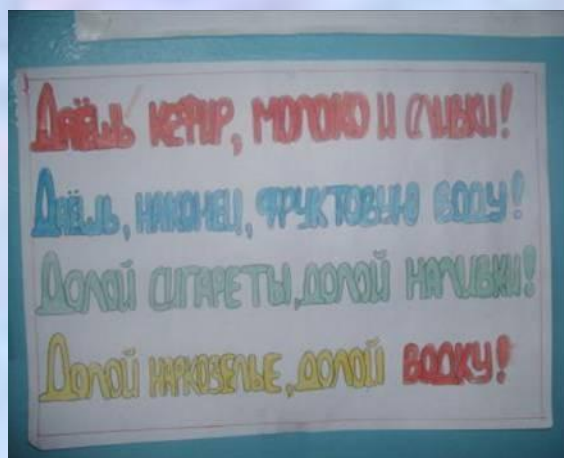 Даёшь кефир, молоко и сливки!
Даёшь, наконец, фруктовую воду!
Долой сигареты, долой наливки!
Долой наркозелье, долой водку!